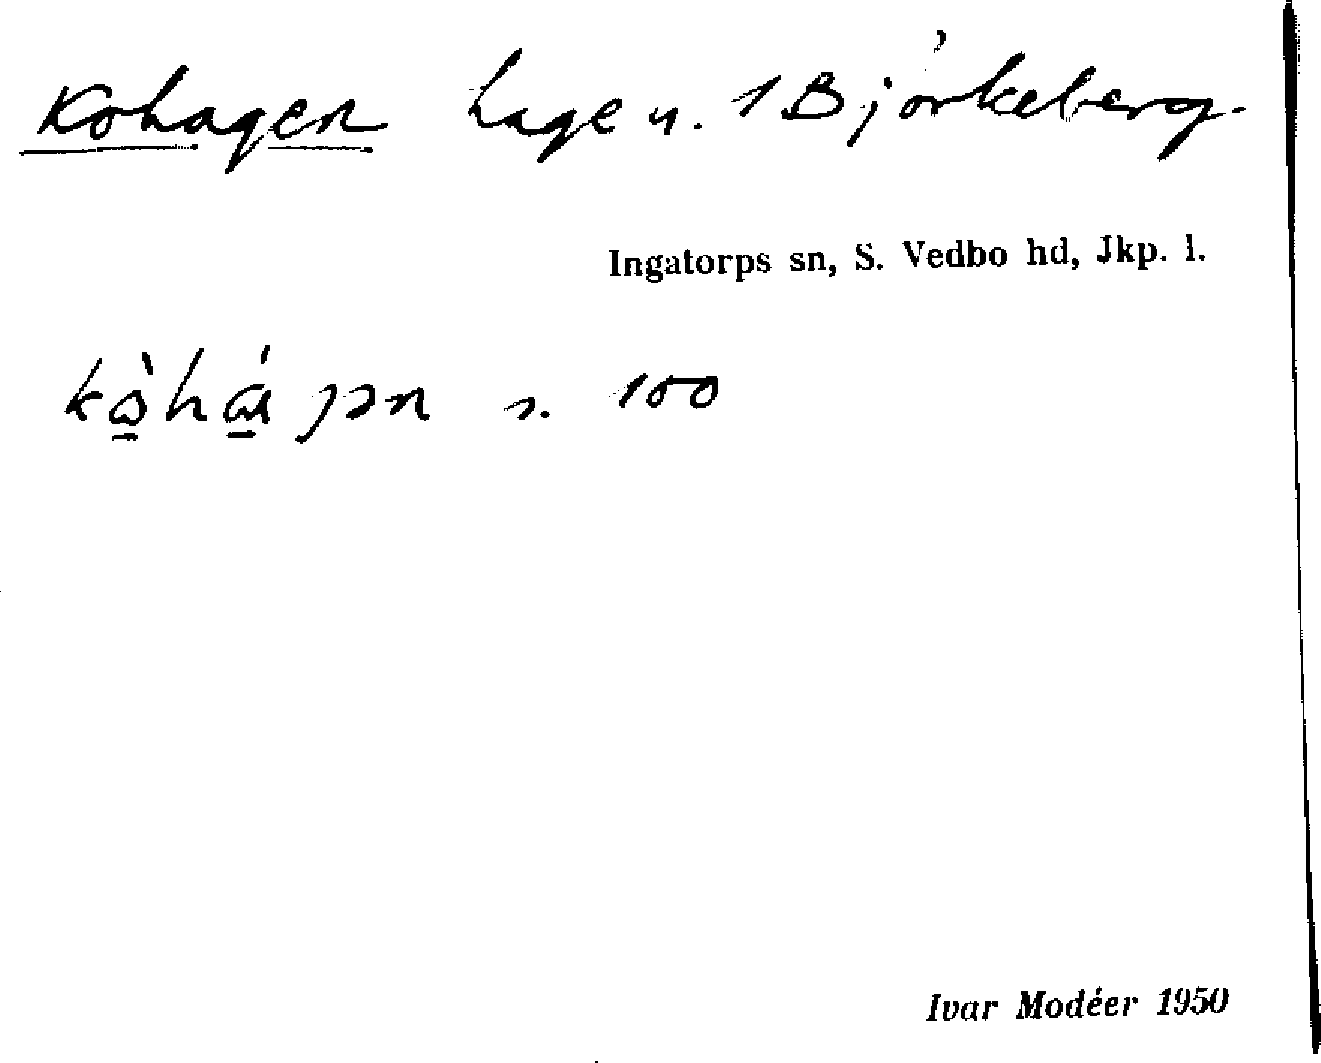 Kohagen hage u. 1 Björkeberg.
Ingatorps sn, S. Vedbo hd, Jkp. l.
s. 100
Ivar Modéer 1950